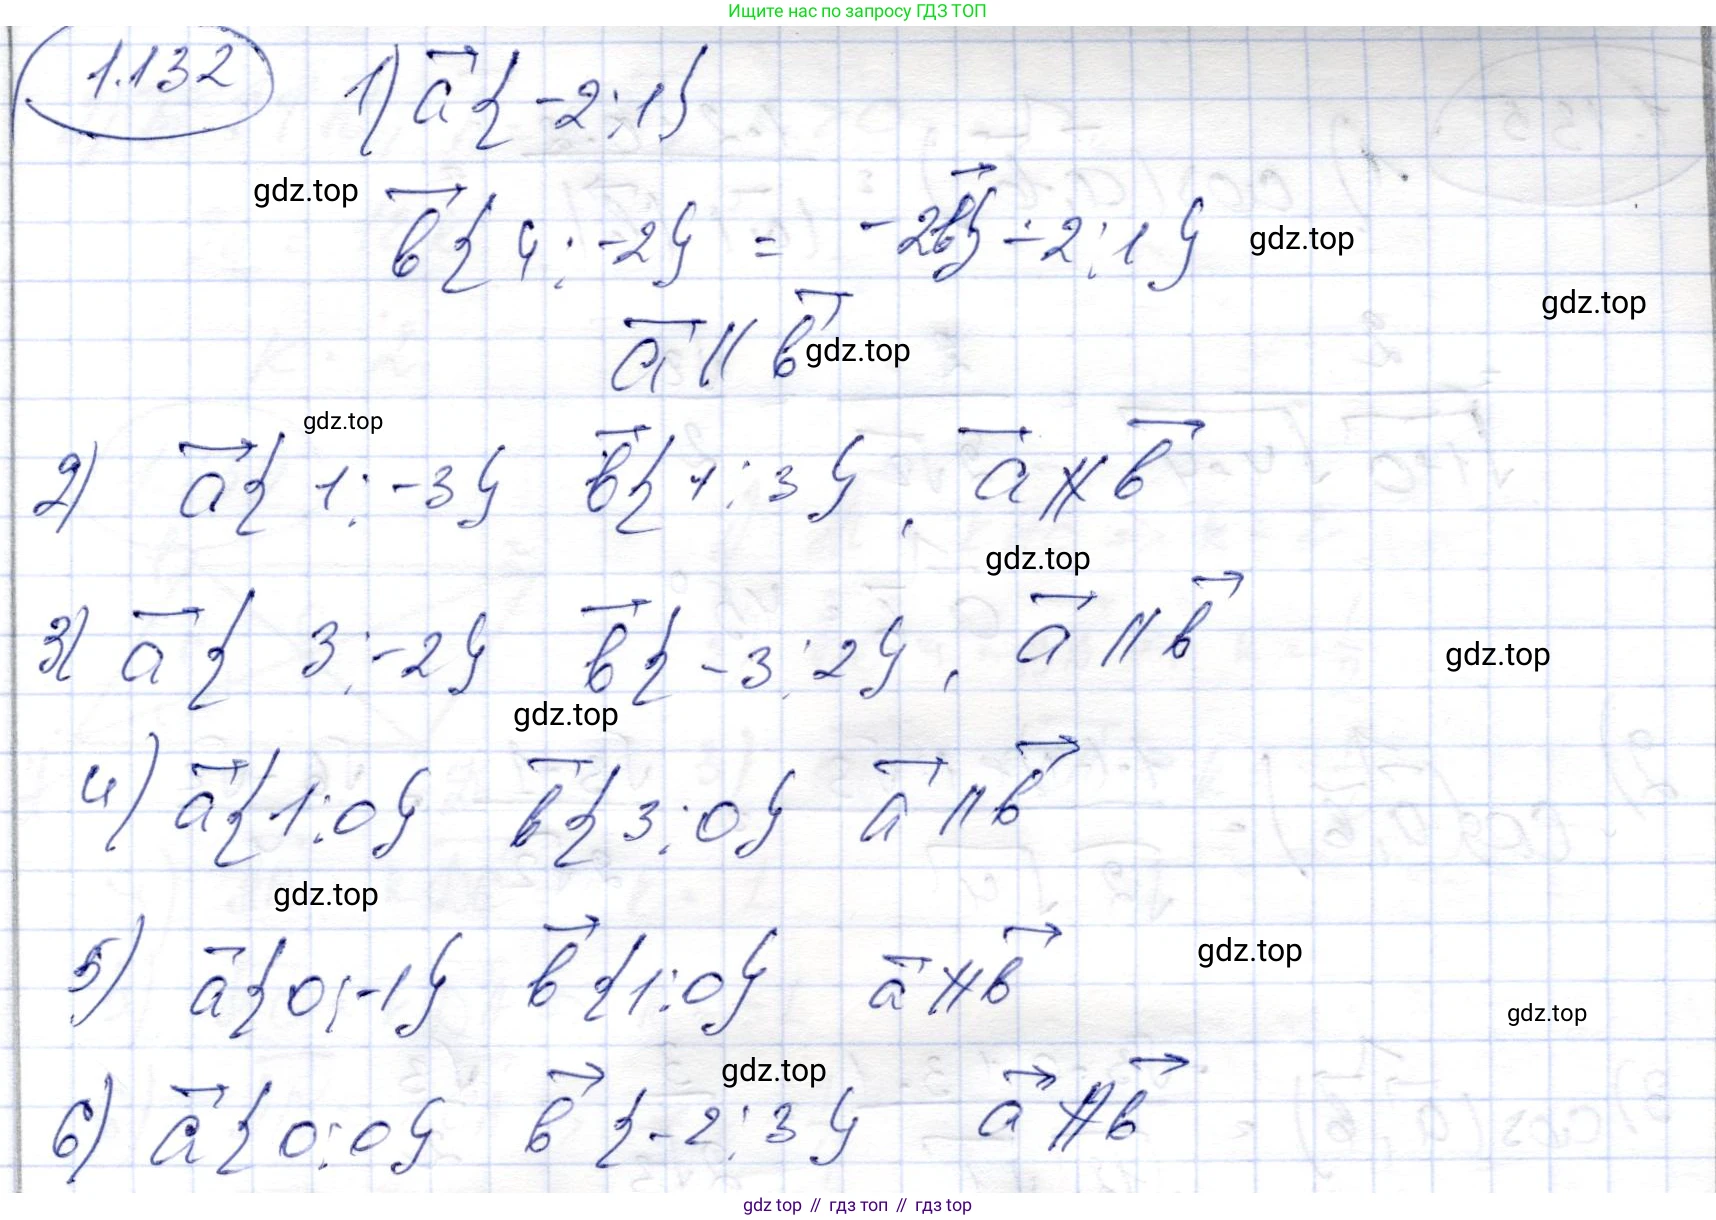 Ищите нас по запросу ГДЗ ТОП
1.132 1) a⃗ { -2 ; 1 }
gdz.top
b⃗ { 4 ; -2 } = -2b⃗ { -2 ; 1 } gdz.top
gdz.top
a⃗ || b⃗ gdz.top
gdz.top
2) a⃗ { 1 ; -3 } b⃗ { 1 ; 3 } , a⃗ ∦ b⃗
gdz.top
3) a⃗ { 3 ; -2 } b⃗ { -3 ; 2 } , a⃗ || b⃗
gdz.top
gdz.top
4) a⃗ { 1 ; 0 } b⃗ { 3 ; 0 } a⃗ || b⃗
gdz.top
5) a⃗ { 0 ; -1 } b⃗ { 1 ; 0 } a⃗ ∦ b⃗
gdz.top
gdz.top
gdz.top
6) a⃗ { 0 ; 0 } b⃗ { -2 ; 3 } a⃗ ∦ b⃗
gdz top // гдз топ // gdz top